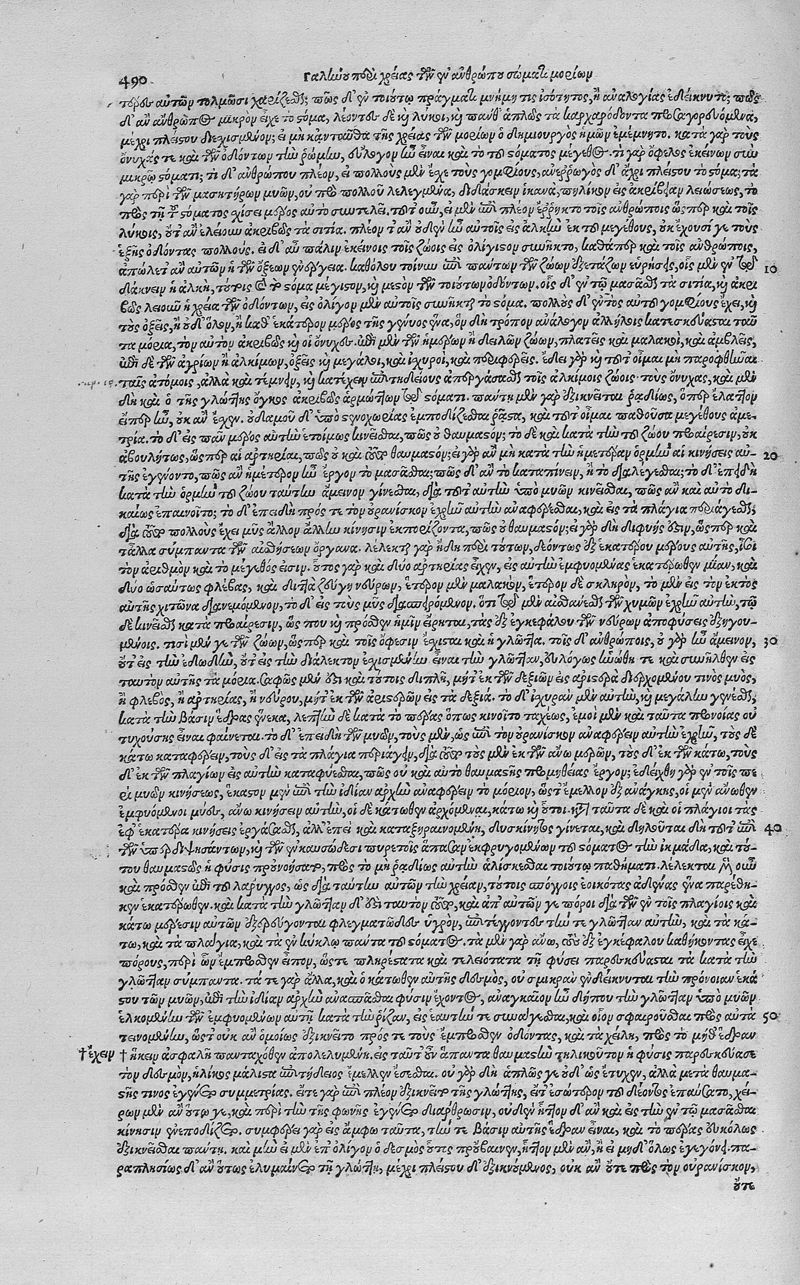 490 Γαληνοῦ περὶ χρείας τῶν ἐν ἀνθρώπου σώματι μορίων
τέρου αὐτῶν τολμῶσι χαρίζεσθαι; πῶς δ' ἐν τοιούτῳ πράγματι μνήμη τις ἰσότητος, ἢ ἀναλογίας ἐδείκνυτο; πῶς
δ' ἂν ἄνθρωπος μικρὸν εἶχε τὸ στόμα, λέοντες δὲ καὶ λύκοι, καὶ πάνθ' ἁπλῶς τὰ καρχαρόδοντα προσαγορευόμενα,
μέχρι πλείστου διεσχισμένον; εἰ μὴ κἀνταῦθα τῆς χρείας τῶν μορίων ὁ δημιουργὸς ἡμῶν ἐμέμνητο. κατὰ γὰρ τοὺς
ὄνυχάς τε καὶ τῶν ὀδόντων τὴν ῥώμην, εὔλογον ἦν εἶναι καὶ τὸ τοῦ στόματος μέγεθος. τί γὰρ ὄφελος ἐκείνων σὺν
μικρῷ στόματι; τί δ' ἀνθρώπου πλέον, εἰ πολλοὺς μὲν ἔχε τοὺς γομφίους, ἀνερρωγὸς δ' ἄχρι πλείστου τὸ στόμα; τὰ
γὰρ περὶ τῶν μασητήρων μυῶν, οὐ πρὸ πολλοῦ λελεγμένα, διδάσκειν ἱκανὰ, πηλίκον εἰς ἀκριβῆ λειώσεως, τὸ
πρὸς τῇ τοῦ στόματος σχίσει μέρος αὐτὸ συντελεῖ. τοῦτ' οὖν, εἰ μὲν ἐπὶ πλέον ἔρρηκτο τοῖς ἀνθρώποις ὥσπερ καὶ τοῖς
λύκοις, οὔτ' ἂν ἐλείουν ἀκριβῶς τὰ σιτία. πλέον τ' ἂν οὐδὲν ἦν αὐτοῖς εἰς ἀλκὴν ἐκ τοῦ μεγέθους, οὐκ ἔχουσί γε τοὺς
ἑξῆς ὀδόντας πολλούς. εἰ δ' αὖ πάλιν ἐκείνοις τοῖς ζώοις εἰς ὀλίγιστον συνῆκτο, καθάπερ καὶ τοῖς ἀνθρώποις,
ἀπώλετ' ἂν αὐτῶν ἡ τῶν ὀξέων ἐνέργεια. καθόλου τοίνυν ἐπὶ πάντων τῶν ζώων ἐξετάζων εὑρήσεις, οἷς μὲν ἐν τῷ 10
δάκνειν ἡ ἀλκὴ, τούτοις καὶ τὸ στόμα μέγιστον, καὶ μεστὸν τῶν τοιούτων ὀδόντων, οἷς δ' ἐν τῷ μασᾶσθαι τὰ σιτία, καὶ ἀκρι
βῶς λειοῦν ἡ χρεία τῶν ὀδόντων, εἰς ὀλίγον μὲν αὐτοῖς συνῆκται τὸ στόμα. πολλοὺς δ' ἐντὸς αὐτοῦ γομφίους ἔχει, καὶ
τοὺς ὀξεῖς, ἢ οὐδ' ὅλως, ἢ καθ' ἑκάτερον μέρος τῆς γένυος ἕνα, ὃν δὴ τρόπον ἀνάλογον ἀλλήλοις κατεσκεύασται ταῦ
τα μόρια, τὸν αὐτὸν ἀκριβῶς καὶ οἱ ὄνυχες. ἐπὶ μὲν τῶν ἡμέρων ἢ δειλῶν ζώων, πλατεῖς καὶ μαλακοὶ, καὶ ἀμβλεῖς,
ἐπὶ δὲ τῶν ἀγρίων ἢ ἀλκίμων, ὀξεῖς καὶ μεγάλοι, καὶ ἰσχυροὶ, καὶ περιφερεῖς. ἔδει γὰρ καὶ τοῦτ' οἶμαι μὴ παροφθῆναι
ταῖς ἀτόμοις, ἀλλὰ καὶ τέμνειν, καὶ κατέχειν ἐπιτηδείους ἀπεργάσασθαι τοῖς ἀλκίμοις ζώοις τοὺς ὄνυχας, καὶ μὲν
δὴ καὶ ὁ τῆς γλώττης ὄγκος ἀκριβῶς ἁρμόττων τῷ στόματι. πάντῃ μὲν γὰρ ἐξικνεῖται ῥᾳδίως, ὅπερ ἔλαττον
εἴπερ ἦν, οὐκ ἂν ἔχειν. οὐδαμοῦ δ' ὑπὸ στενοχωρίας ἐμποδίζεται ῥᾷστα, καὶ τοῦτ' οἶμαι παθοῦσα μεγέθους ἀμε-
τρία. τὸ δ' εἰς πᾶν μέρος αὐτὴν ἑτοίμως κινεῖσθαι, πῶς οὐ θαυμαστόν; τὸ δὲ καὶ κατὰ τὴν τοῦ ζώου προαίρεσιν, οὐκ
ἀβουλήτως, ὥσπερ αἱ ἀρτηρίαι, πῶς οὐ καὶ τοῦτο θαυμαστόν; εἰ γὰρ ἂν μὴ κατὰ τὴν ἡμετέραν ὁρμὴν αἱ κινήσεις αὐ- 20
τῆς ἐγένοντο, πῶς ἂν ἡμέτερον ἦν ἔργον τὸ μασᾶσθαι; πῶς δ' ἂν τὸ καταπίνειν, ἢ τὸ διαλέγεσθαι; τὸ δ' ἐπειδὴ
κατὰ τὴν ὁρμὴν τοῦ ζώου ταύτην ἄμεινον γίνεσθαι, διὰ τοῦτ' αὐτὴν ὑπὸ μυῶν κινεῖσθαι, πῶς ἂν καὶ αὐτὸ δι-
καίως ἐπαινοῖτο; τὸ δ' ἐπειδὴ πρός τε τὸν οὐρανίσκον ἐχρῆν αὐτὴν ἀναφέρεσθαι, καὶ εἰς τὰ πλάγια περιάγεσθαι,
διὰ τοῦτο πολλοὺς ἔχει μῦς ἄλλον ἄλλην κίνησιν ἐκπορίζοντα, πῶς οὐ θαυμαστόν; εἰ γὰρ δὴ διφυής ἐστιν, ὥσπερ καὶ
τἄλλα σύμπαντα τῶν αἰσθήσεων ὄργανα. λέλεκται γὰρ ἤδη περὶ τούτων, δεόντως ἐξ ἑκατέρου μέρους αὐτῆς, ἴσοι
τὸν ἀριθμὸν καὶ τὸ μέγεθός εἰσιν. οὕτως γὰρ καὶ δύο ἀρτηρίας ἔχειν, εἰς αὐτὴν ἐμφυομένας ἑκατέρωθεν μίαν, καὶ
δύο ὡσαύτως φλέβας, καὶ διττὰ ζεύγη νεύρων, ἕτερον μὲν μαλακὸν, ἕτερον δὲ σκληρὸν, τὸ μὲν εἰς τὸν ἐκτὸς
αὐτῆς χιτῶνα διανεμόμενον, τὸ δ' εἰς τοὺς μῦς διασπειρόμενον. ὅτι τῷ μὲν αἰσθάνεσθαι τῶν χυμῶν ἐχρῆν αὐτὴν, τῷ
δὲ κινεῖσθαι κατὰ προαίρεσιν, ὥς που καὶ πρόσθεν ἡμῖν εἴρηται, τὰς ἐξ ἐγκεφάλου τῶν νεύρων ἀποφύσεις ἐξηγου-
μένοις. τισὶ μέν γε τῶν ζώων, ὥσπερ καὶ τοῖς ὄφεσιν ἔσχισται καὶ ἡ γλῶττα. τοῖς δ' ἀνθρώποις, οὐ γὰρ ἦν ἄμεινον, 30
οὔτ' εἰς τὴν ἐδωδὴν, οὔτ' εἰς τὴν διάλεκτον ἐσχισμένην εἶναι τὴν γλῶτταν, εὐλόγως ἡνώθη τε καὶ συνῆλθεν εἰς
ταὐτὸν αὐτῆς τὰ μόρια. σαφῶς μὲν ἔτι καὶ τούτοις διπλῆ, μήτ' ἐκ τῶν δεξιῶν εἰς ἀριστερὰ διερχομένου τινὸς μυὸς,
ἢ φλεβὸς, ἢ ἀρτηρίας, ἢ νεύρου, μήτ' ἐκ τῶν ἀριστερῶν εἰς τὰ δεξιά. τὸ δ' ἰσχυρὰν μὲν αὐτὴν, καὶ μεγάλην γενέσθαι,
κατὰ τὴν βάσιν ἕδρας ἕνεκα, λεπτὴν δὲ κατὰ τὸ πέρας ὅπως κινοῖτο ταχέως, ἐμοὶ μὲν καὶ ταῦτα προνοίας οὐ
τυχούσης εἶναι φαίνεται. τὸ δ' ἐπειδὴ τῶν μυῶν, τοὺς μὲν, ὡς ἐπὶ τὸν οὐρανίσκον ἀναφέρειν αὐτὴν ἐχρῆν, τοὺς δὲ
κάτω καταφέρειν, τοὺς δ' εἰς τὰ πλάγια περιάγειν, διὰ τοῦτο τοὺς μὲν ἐκ τῶν ἄνω μερῶν, τοὺς δ' ἐκ τῶν κάτω, τοὺς
δ' ἐκ τῶν πλαγίων εἰς αὐτὴν καταφύεσθαι, πῶς οὐ καὶ αὐτὸ θαυμαστῆς προμηθείας ἔργον; ἐδείχθη γὰρ ἐν τοῖς πε
ρὶ μυῶν κινήσεως, ἕκαστον μῦν ἐπὶ τὴν ἰδίαν ἀρχὴν ἀναφέρειν τὸ μόριον, ὥστ' ἔμελλον ἐξ ἀνάγκης, οἱ μὲν ἄνωθεν
ἐμφυόμενοι μύες, ἄνω κινήσειν αὐτὴν, οἱ δὲ κάτωθεν ἀρχόμενοι, κάτω καὶ οὗτοι. κατὰ ταῦτα δὲ καὶ οἱ πλάγιοι τὰς
ἐφ' ἑκάτερα κινήσεις ἐργάζεσθαι, ἀλλ' ἐπεὶ καὶ καταξηραινομένη, δυσκίνητος γίνεται, καὶ δηλοῦται δὴ τοῦτ' ἐπὶ 40
τῶν ὑπερδιψησάντων, καὶ τῶν ἐν καυσώδεσι πυρετοῖς ἅπασαν ἐκφρυγομένων τοῦ σώματος τὴν ἰκμάδα, καὶ τού-
του θαυμαστῶς ἡ φύσις προὐνοήσατο, πρὸς τὸ μὴ ῥᾳδίως αὐτὴν ἁλίσκεσθαι τοιούτῳ παθήματι. λέλεκται μὲν οὖν
καὶ πρόσθεν ἐπὶ τοῦ λάρυγγος, ὡς διὰ ταύτην αὐτῶν τὴν χρείαν, τούτοις σπόγγοις ἐοικότας ἀδένας ἕνα παρέθη-
κεν ἑκατέρωθεν. καὶ κατὰ τὴν γλῶτταν δ' ἔτι ταὐτὸν τοῦτο, καὶ ἀπ' αὐτῶν γε πόροι διὰ τῶν ἐν τοῖς πλαγίοις καὶ
κάτω μέρεσιν αὐτῶν ἐξερεύγονται φλεγματῶδες ὑγρὸν, ἐπιτέγγοντες τήν τε γλῶτταν αὐτὴν, καὶ τὰ κά-
τω, καὶ τὰ πλάγια, καὶ τὰ ἐν κύκλῳ πάντα τοῦ στόματος. τὰ μὲν γὰρ ἄνω, τοὺς ἐξ ἐγκεφάλου καθήκοντας εἶχε
πόρους, περὶ ὧν ἔμπροσθεν εἶπον, ὥστε πληρέστατα καὶ τελειότατα τῇ φύσει παρεσκεύασται τὰ κατὰ τὴν
γλῶτταν σύμπαντα. τά τε γὰρ ἄλλα, καὶ ὁ κάτωθεν αὐτῆς δεσμὸς, οὐ σμικρὰν ἐνδείκνυται τὴν πρόνοιαν ἑκά
στου τῶν μυῶν, ἐπὶ τὴν ἰδίαν ἀρχὴν ἀνασπᾶσθαι φύσιν ἔχοντος, ἀναγκαῖον ἦν δήπου τὴν γλῶτταν ὑπὸ μυῶν
ἑλκομένην τῶν ἐμφυομένων αὐτῇ κατὰ τὴν ῥίζαν, εἰς ἑαυτήν τε συνάγεσθαι, καὶ οἷον σφαιροῦσθαι πρὸς αὐτὰ 50
τεινομένην, ὥστ' οὐκ ἂν ὁμοίως ἐξικνεῖτο πρός τε τοὺς ἔμπροσθεν ὀδόντας, καὶ τὰ χείλη, πρὸς τὸ μήθ' ἕδραν
†ἔχειν † ἥκειν ἀσφαλῆ πανταχόθεν ἀπολελυμένη. εἰς ταῦτ' οὖν ἅπαντα θαυμαστὴν τηλικοῦτον ἡ φύσις παρεσκεύασε
τὸν δεσμὸν, ἡλίκος μάλιστα ἐπιτήδειος ἔμελλεν ἔσεσθαι. οὐ γὰρ δὴ ἁπλῶς γε οὐδ' ὡς ἔτυχεν, ἀλλὰ μετὰ θαυμα-
στῆς τινος ἐγένετο συμμετρίας. εἴτε γὰρ ἐπὶ πλέον ἐξικνεῖτο τῆς γλώττης, εἴτ' ἐσωτέρου τοῦ δέοντος ἐπαύσατο, χεῖ-
ρον μὲν ἂν οὕτω γε, καὶ περὶ τὴν τῆς φωνῆς ἐγένετο διάρθρωσιν, οὐδὲν ἧττον δ' ἂν καὶ εἰς τὴν ἐν τῷ μασᾶσθαι
κίνησιν ἐνεποδίζετο. συμφέρει γὰρ εἰς ἄμφω ταῦτα, τήν τε βάσιν αὐτῆς ἕδραν εἶναι, καὶ τὸ πέρας εὐκόλως
ἐξικνεῖσθαι πάντῃ. καὶ μὴν εἰ μὲν ἐπ' ὀλίγον ὁ δεσμὸς οὗτος προὔβαινεν, ἧττον μὲν ἂν, ἢ εἰ μηδ' ὅλως ἐγεγόνει. πα-
ραπλησίως δ' ἂν οὕτως ἐλυμαίνετο τῇ γλώττῃ, μέχρι πλείστου δ' ἐξικνούμενος, οὐκ ἂν οὔτε πρὸς τὸν οὐρανίσκον,
οὔτε